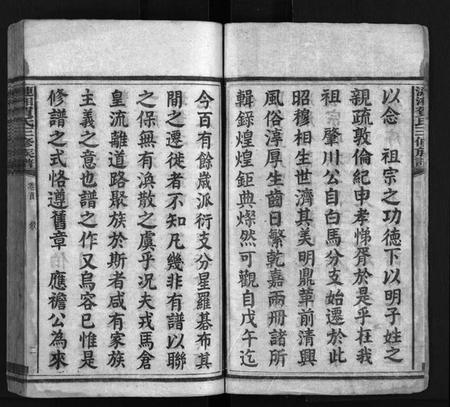 以念　祖宗之功德下以明子姓之
親疏敦倫紀申孝悌胥於是乎在我
祖　肇川公自白馬分支始遷於此
昭穆相生世濟其美明鼎革前清興
風俗淳厚生齒日繁乾嘉兩冊諸所
輯録煌煌鉅典燦然可觀自戊午迄
今百有餘歲派衍支分星羅碁布其
間之遷徙者不知凡幾非有譜以聯
之保無有渙散之虞乎況夫戎馬倉
皇流離道路聚族於斯者咸有家族
主義之意也譜之作又烏容已惟是
修譜之式恪遵舊章　應襜公為來
氏三修族譜
卷首